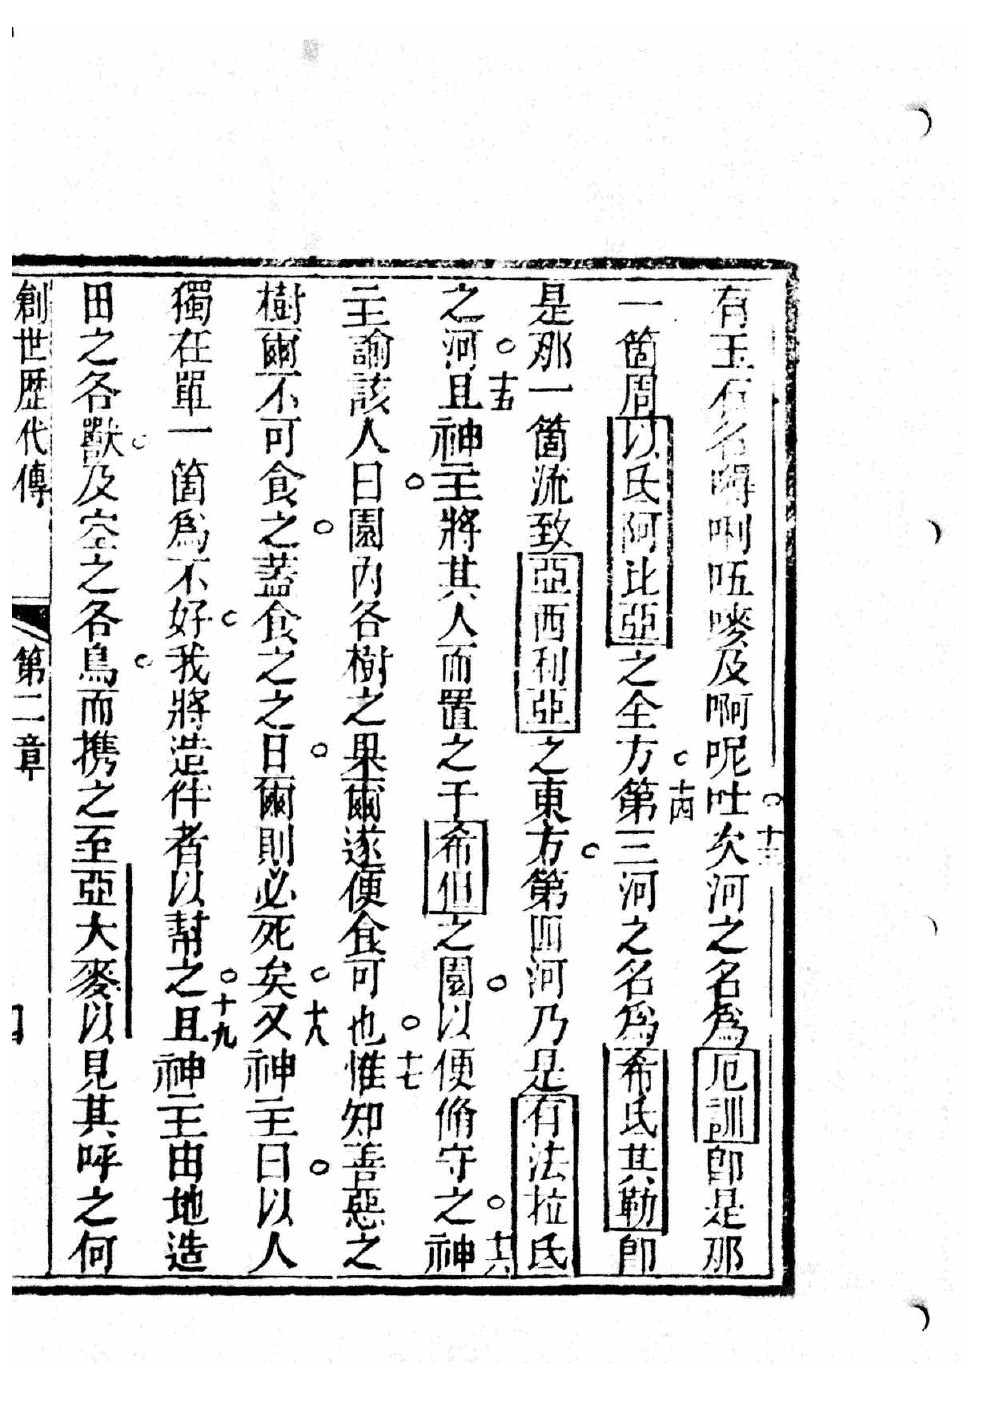 有玉石名嘚唎呧嘜及啊呢吐○十三次河之名爲厄訓卽是那
一箇周以氏阿比亞之全方○十四第三河之名爲希氏其勒卽
是那一箇流致亞西利亞之東方○第四河乃是有法拉氏
之河○十五且神主將其人而置之于希但之園○以便脩守之○十六神
主諭該人曰○園內各樹之果爾遂便食可也○十七惟知善惡之
樹爾不可食之○蓋食之之日○爾則必死矣○十八又神主曰○以人
獨在單一箇爲不好○我將造伴者以幫之○十九且神主由地造
田之各獸○及空之各鳥○而携之至亞大麥以見其呼之何
創世歷代傳 第二章